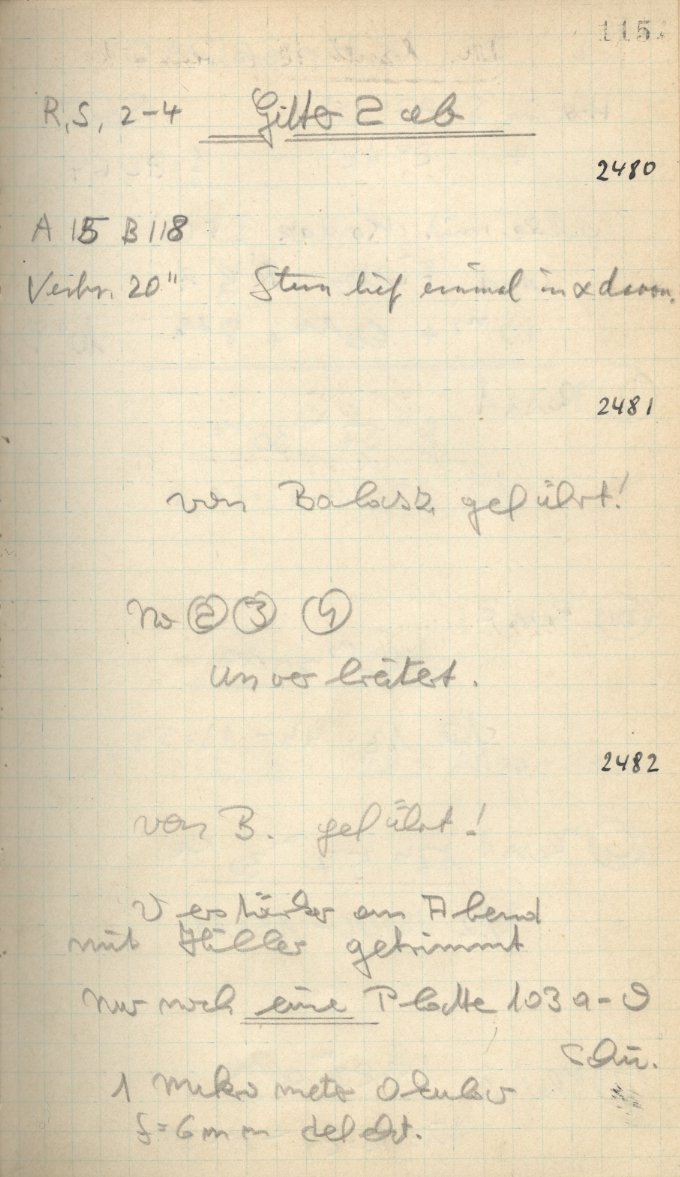 115
R, S, 2-4 Gitter 2 ab
2480
A 115 B 118
Verbr. 20" Stern lief einmal in α davon.
2481
von Balasz. geführt!
No ② ③ ④
unverbreitert.
2482
von B. geführt!
Verstärker am Abend
mit Hiller getrimmt
Nur noch eine Platte 103 a-O
Schü.
1 Mikrometer Okular
f=6mm defekt.